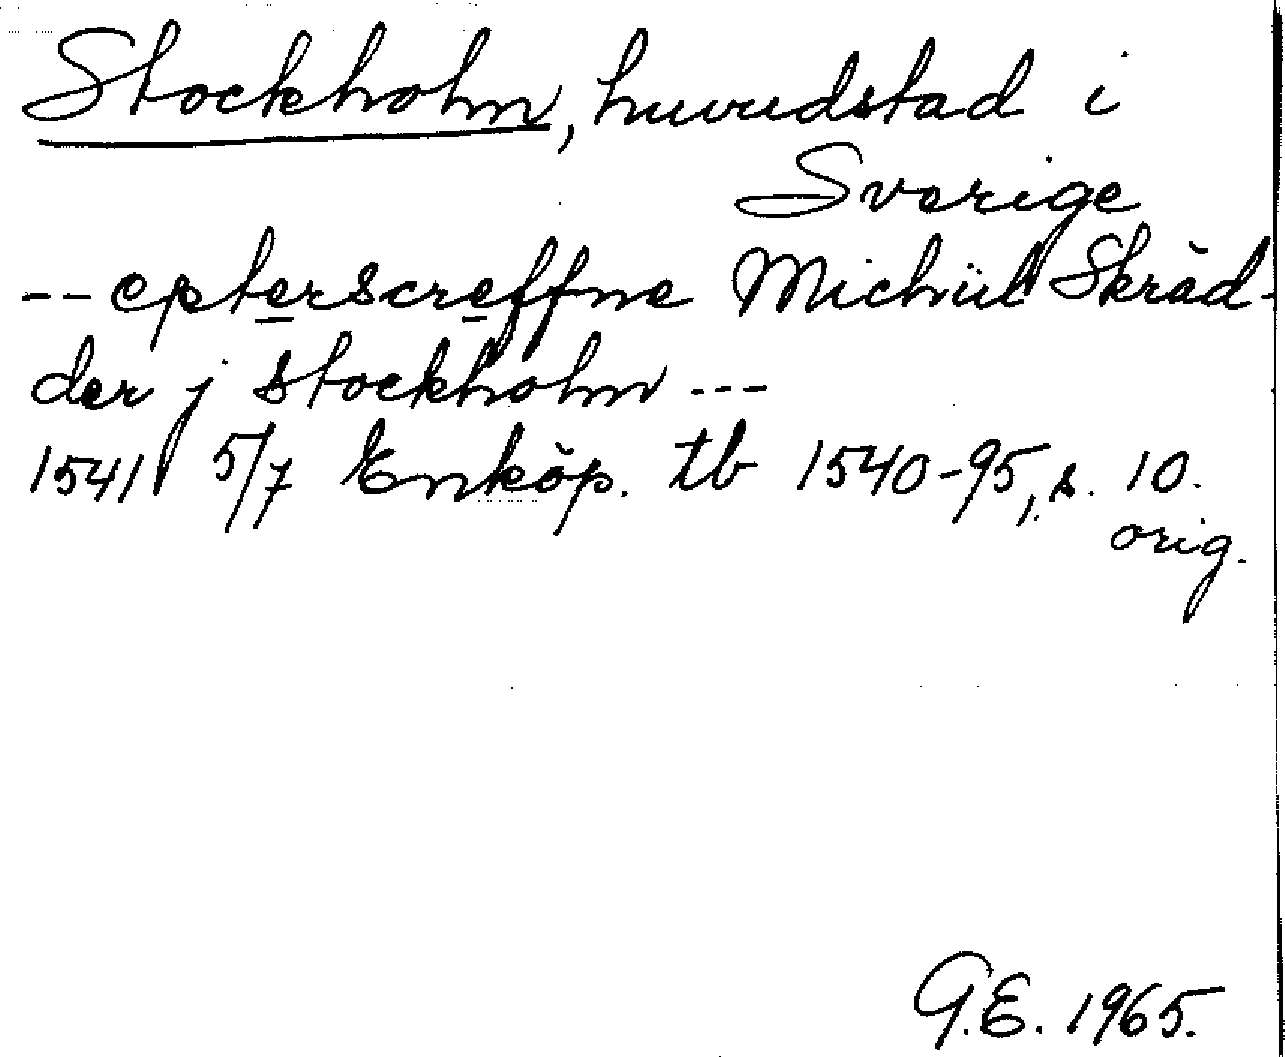 Stockholm, huvudstad i
Sverige
-- epterscreffne Michiil Skräd-
der j stockholm ---
1541 5/7 Enköp. tb 1540-95, s. 10.
orig.
G.E. 1965.